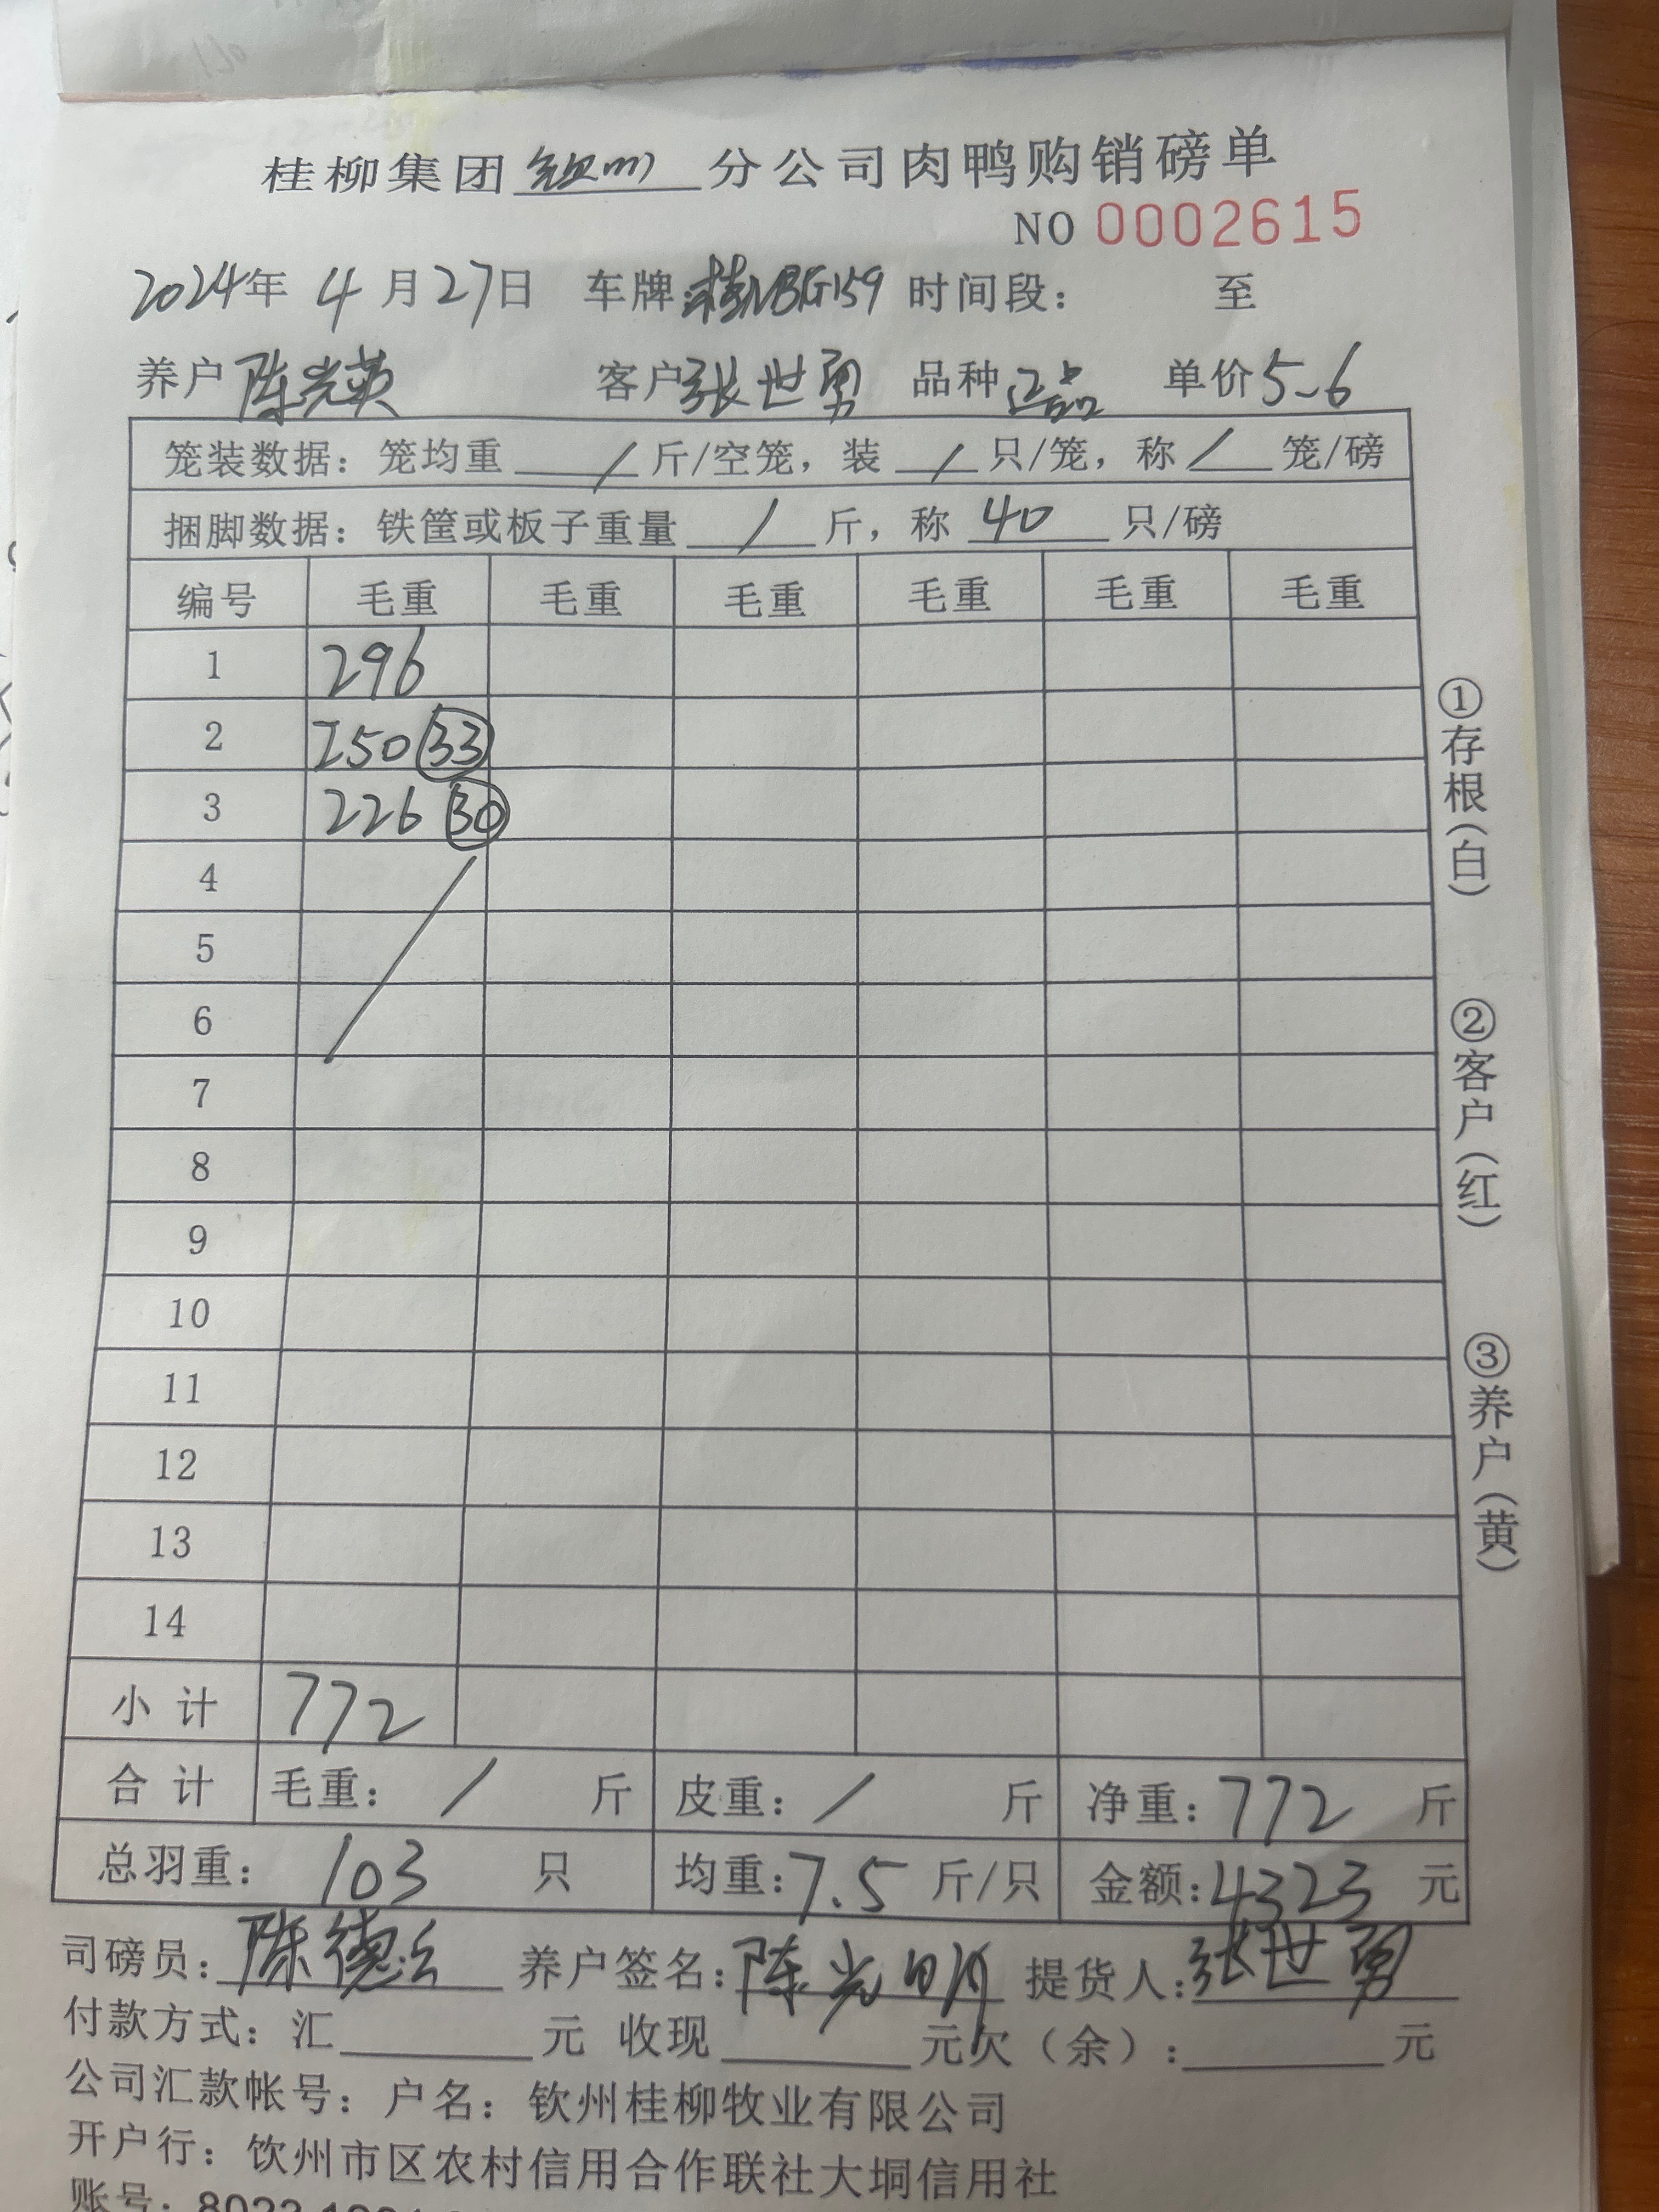 桂柳集团钦州分公司肉鸭购销磅单
NO 0002615
2024年 4月27日 车牌:桂NBG159 时间段: 至
养户 陈光英 客户 张世勇 品种 正品 单价 5-6
笼装数据:笼均重 / 斤/空笼,装 / 只/笼,称 / 笼/磅
捆脚数据:铁筐或板子重量 / 斤,称 40 只/磅
编号 毛重 毛重 毛重 毛重 毛重 毛重
1 296
2 250 33
3 226 30
4
5
6
7
8
9
10
11
12
13
14
小计 772
合计 毛重: / 斤 皮重: / 斤 净重:772 斤
总羽重: 103 只 均重:7.5 斤/只 金额:4323 元
①存根(白)
②客户(红)
③养户(黄)
司磅员:陈德 养户签名:陈光明 提货人:张世勇
付款方式:汇 元 收现 元欠(余): 元
公司汇款帐号:户名:钦州桂柳牧业有限公司
开户行:钦州市区农村信用合作联社大垌信用社
账号:8023